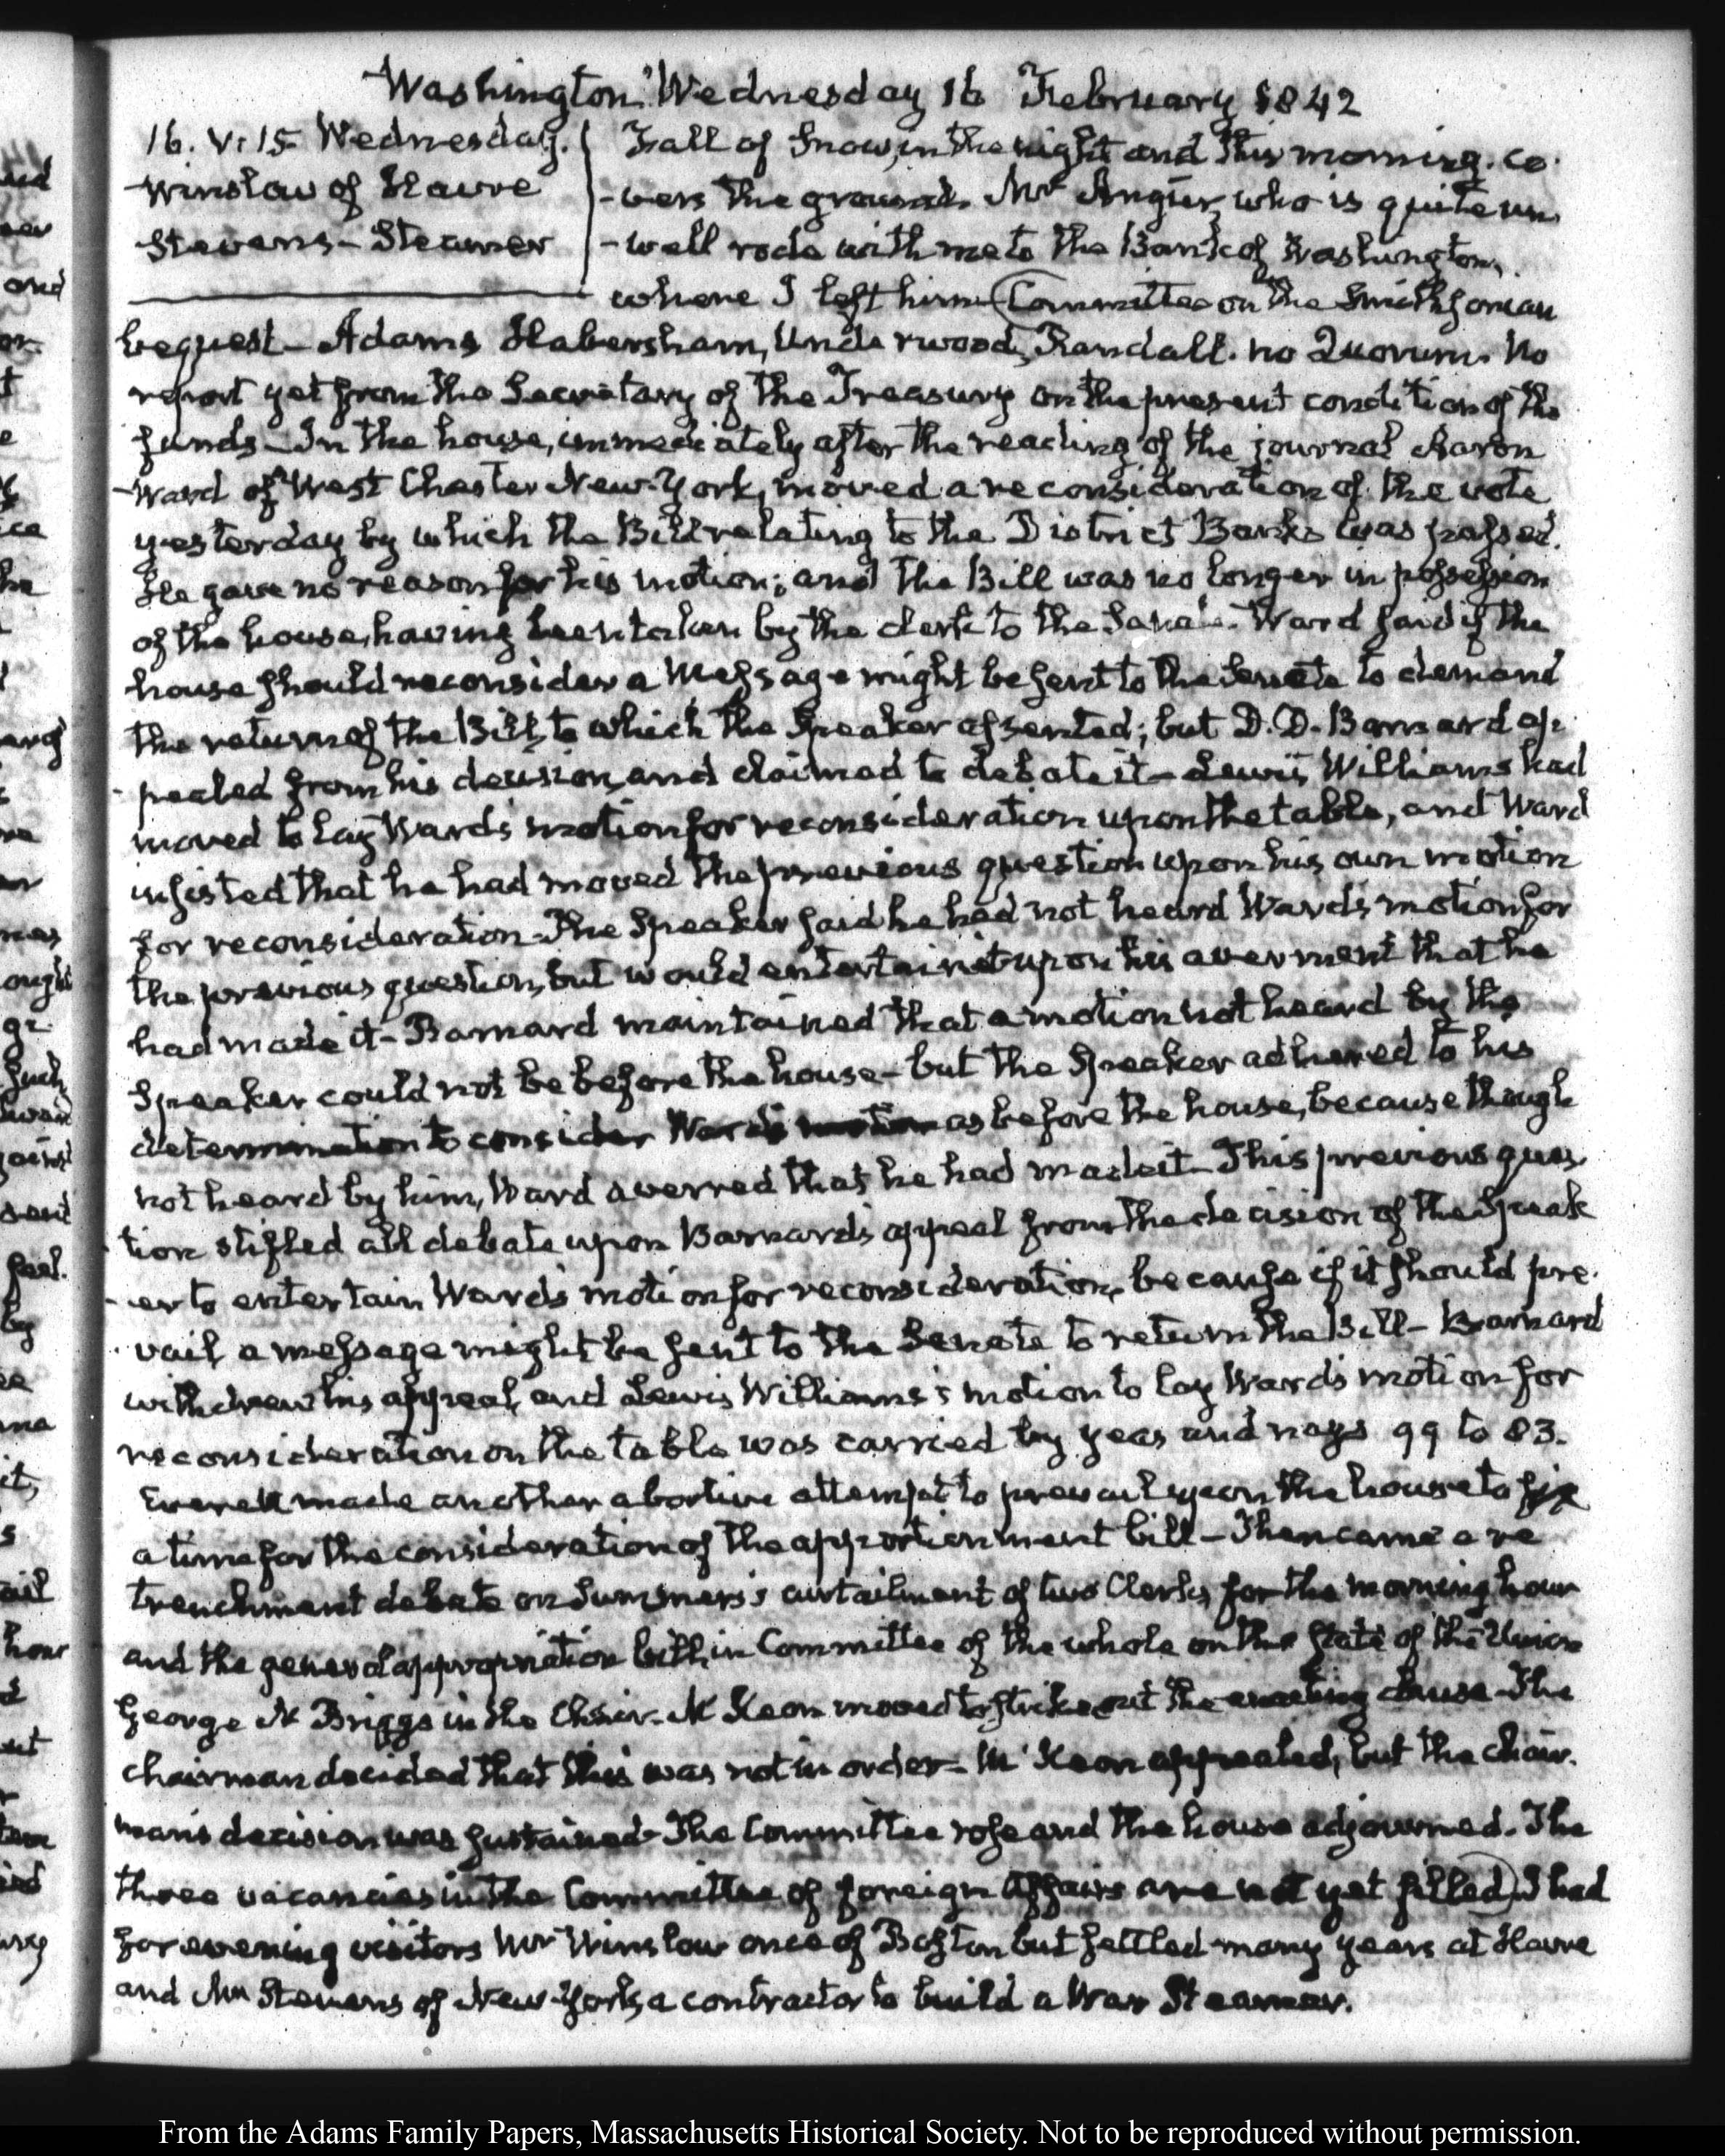 Washington Wednesday 16 February 1842
16. V:15 Wednesday.
Winslow of Havre
Stevens – Steamer
Fall of Snow, in the night and this morning. co-
-vers the ground. Mr Angier, who is quite un
-well rode with me to the Bank of Washington,
where I left him (Committee on the Smithsonian
bequest – Adams Habersham, Underwood, Randall. no Quorum. No
report yet from the Secretary of the Treasury on the present condition of the
funds – In the house, immediately after the reading of the journal Aaron
Ward of West Chester New-York, moved a reconsideration of the vote
yesterday by which the Bill relating to the District Banks was passed.
He gave no reason for his motion; and the Bill was no longer in possession
of the house, having been taken by the clerk to the Senate. Ward said if the
house should reconsider a Message might be sent to the Senate to demand
the return of the Bill, to which the Speaker assented; but D. D. Barnard ap-
pealed from his decision, and claimed to debate it – Lewis Williams had
moved to lay Ward's motion for reconsideration upon the table, and Ward
insisted that he had moved the previous question upon his own motion
for reconsideration – The Speaker said he had not heard Ward's motion for
the previous question, but would entertain it upon his averment that he
had made it – Barnard maintained that a motion not heard by the
Speaker could not be before the house – but the Speaker adhered to his
determination to consider Ward's motion as before the house, because though
not heard by him, Ward averred that he had made it – This previous ques-
tion stifled all debate upon Barnard's appeal from the decision of the Speak
-er to entertain Ward's motion for reconsideration, because if it should pre-
vail a message might be sent to the Senate to return the Bill – Barnard
withdrew his appeal, and Lewis Williams's motion to lay Ward's motion for
reconsideration on the table was carried by yeas and nays 99 to 83.
Everett made another abortive attempt to prevail upon the house to fix
a time for the consideration of the apportionment bill – Then came a re
trenchment debate on Summers's curtailment of two Clerks, for the morning hour
and the general appropriation bill, in Committee of the whole on the state of the Union
George N Briggs in the Chair. McKeon moved to strike out the enacting clause – The
chairman decided that this was not in order – McKeon appealed, but the chair-
man's decision was sustained – The Committee rose and the house adjourned. The
three vacancies in the Committee of foreign Affairs are not yet filled) I had
for evening visitors Mr Winslow once of Boston but settled many years at Havre
and Mr Stevens of New-York, a contractor to build a War Steamer.
From the Adams Family Papers, Massachusetts Historical Society. Not to be reproduced without permission.